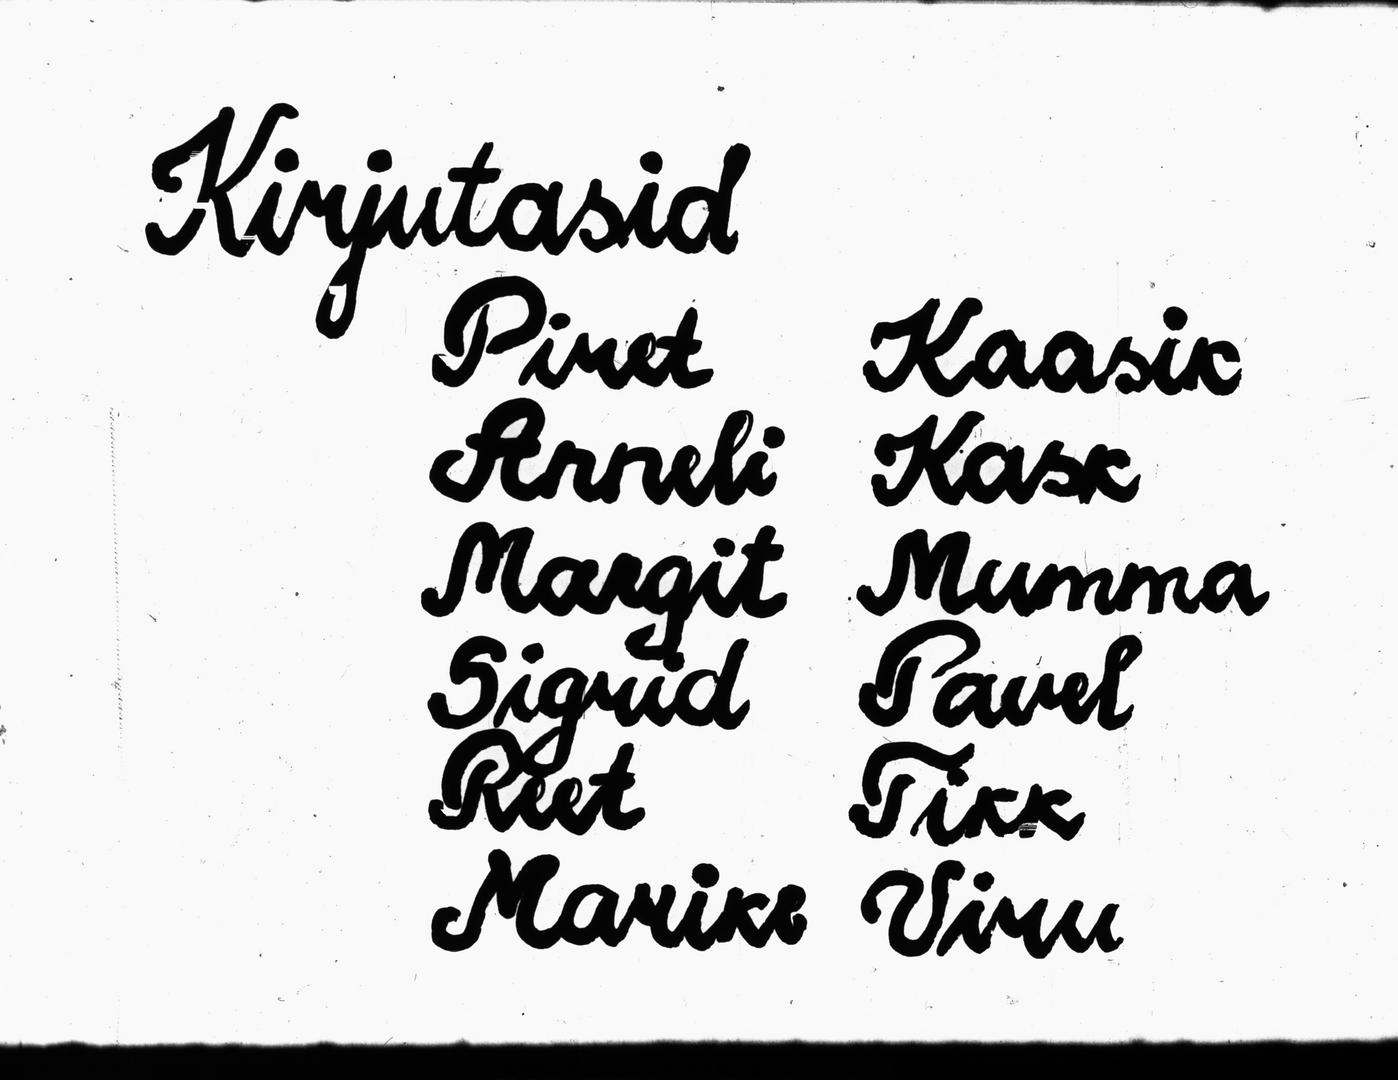 Kirjutasid
Piret Kaasik
Anneli Kask
Margit Mumma
Sigrid Pavel
Reet Tikk
Marike Viru